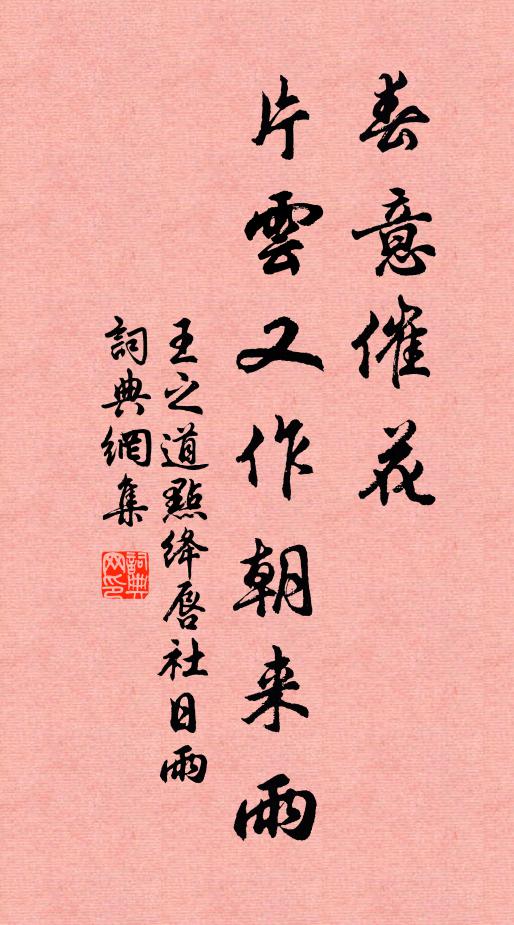 春意催花
片雲又作朝来雨
王之道點絳唇社日雨
詞典網集
詞典网印